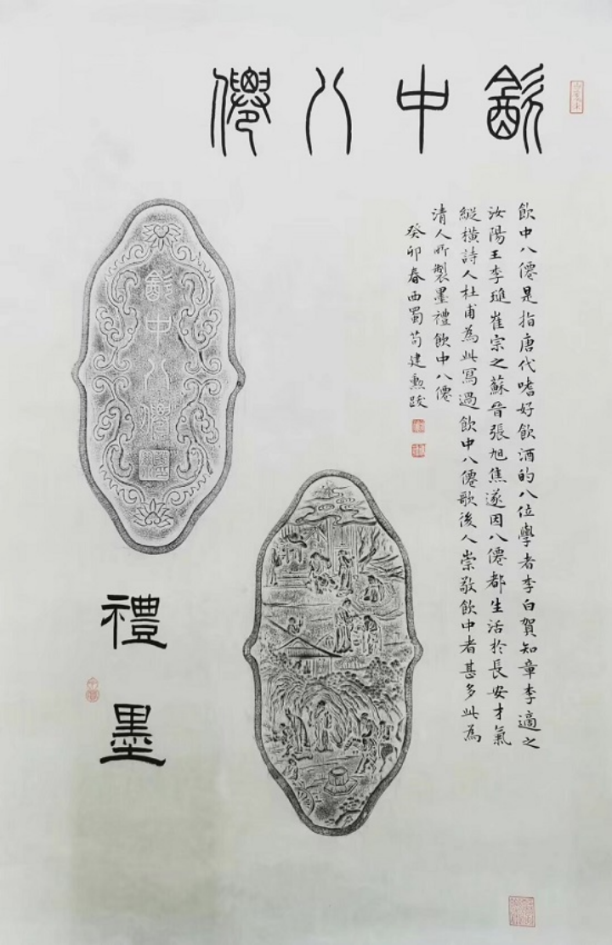 飲中八僊
飲中八僊是指唐代嗜好飲酒的八位學者李白賀知章李適之
汝陽王李璡崔宗之蘇晉張旭焦遂因八僊都生活於長安才氣
縱橫詩人杜甫為此寫過飲中八僊歌後人崇敬飲中者甚多此為
清人所製墨禮飲中八僊
癸卯春西蜀苟建勲跋
飲中八僊
禮墨